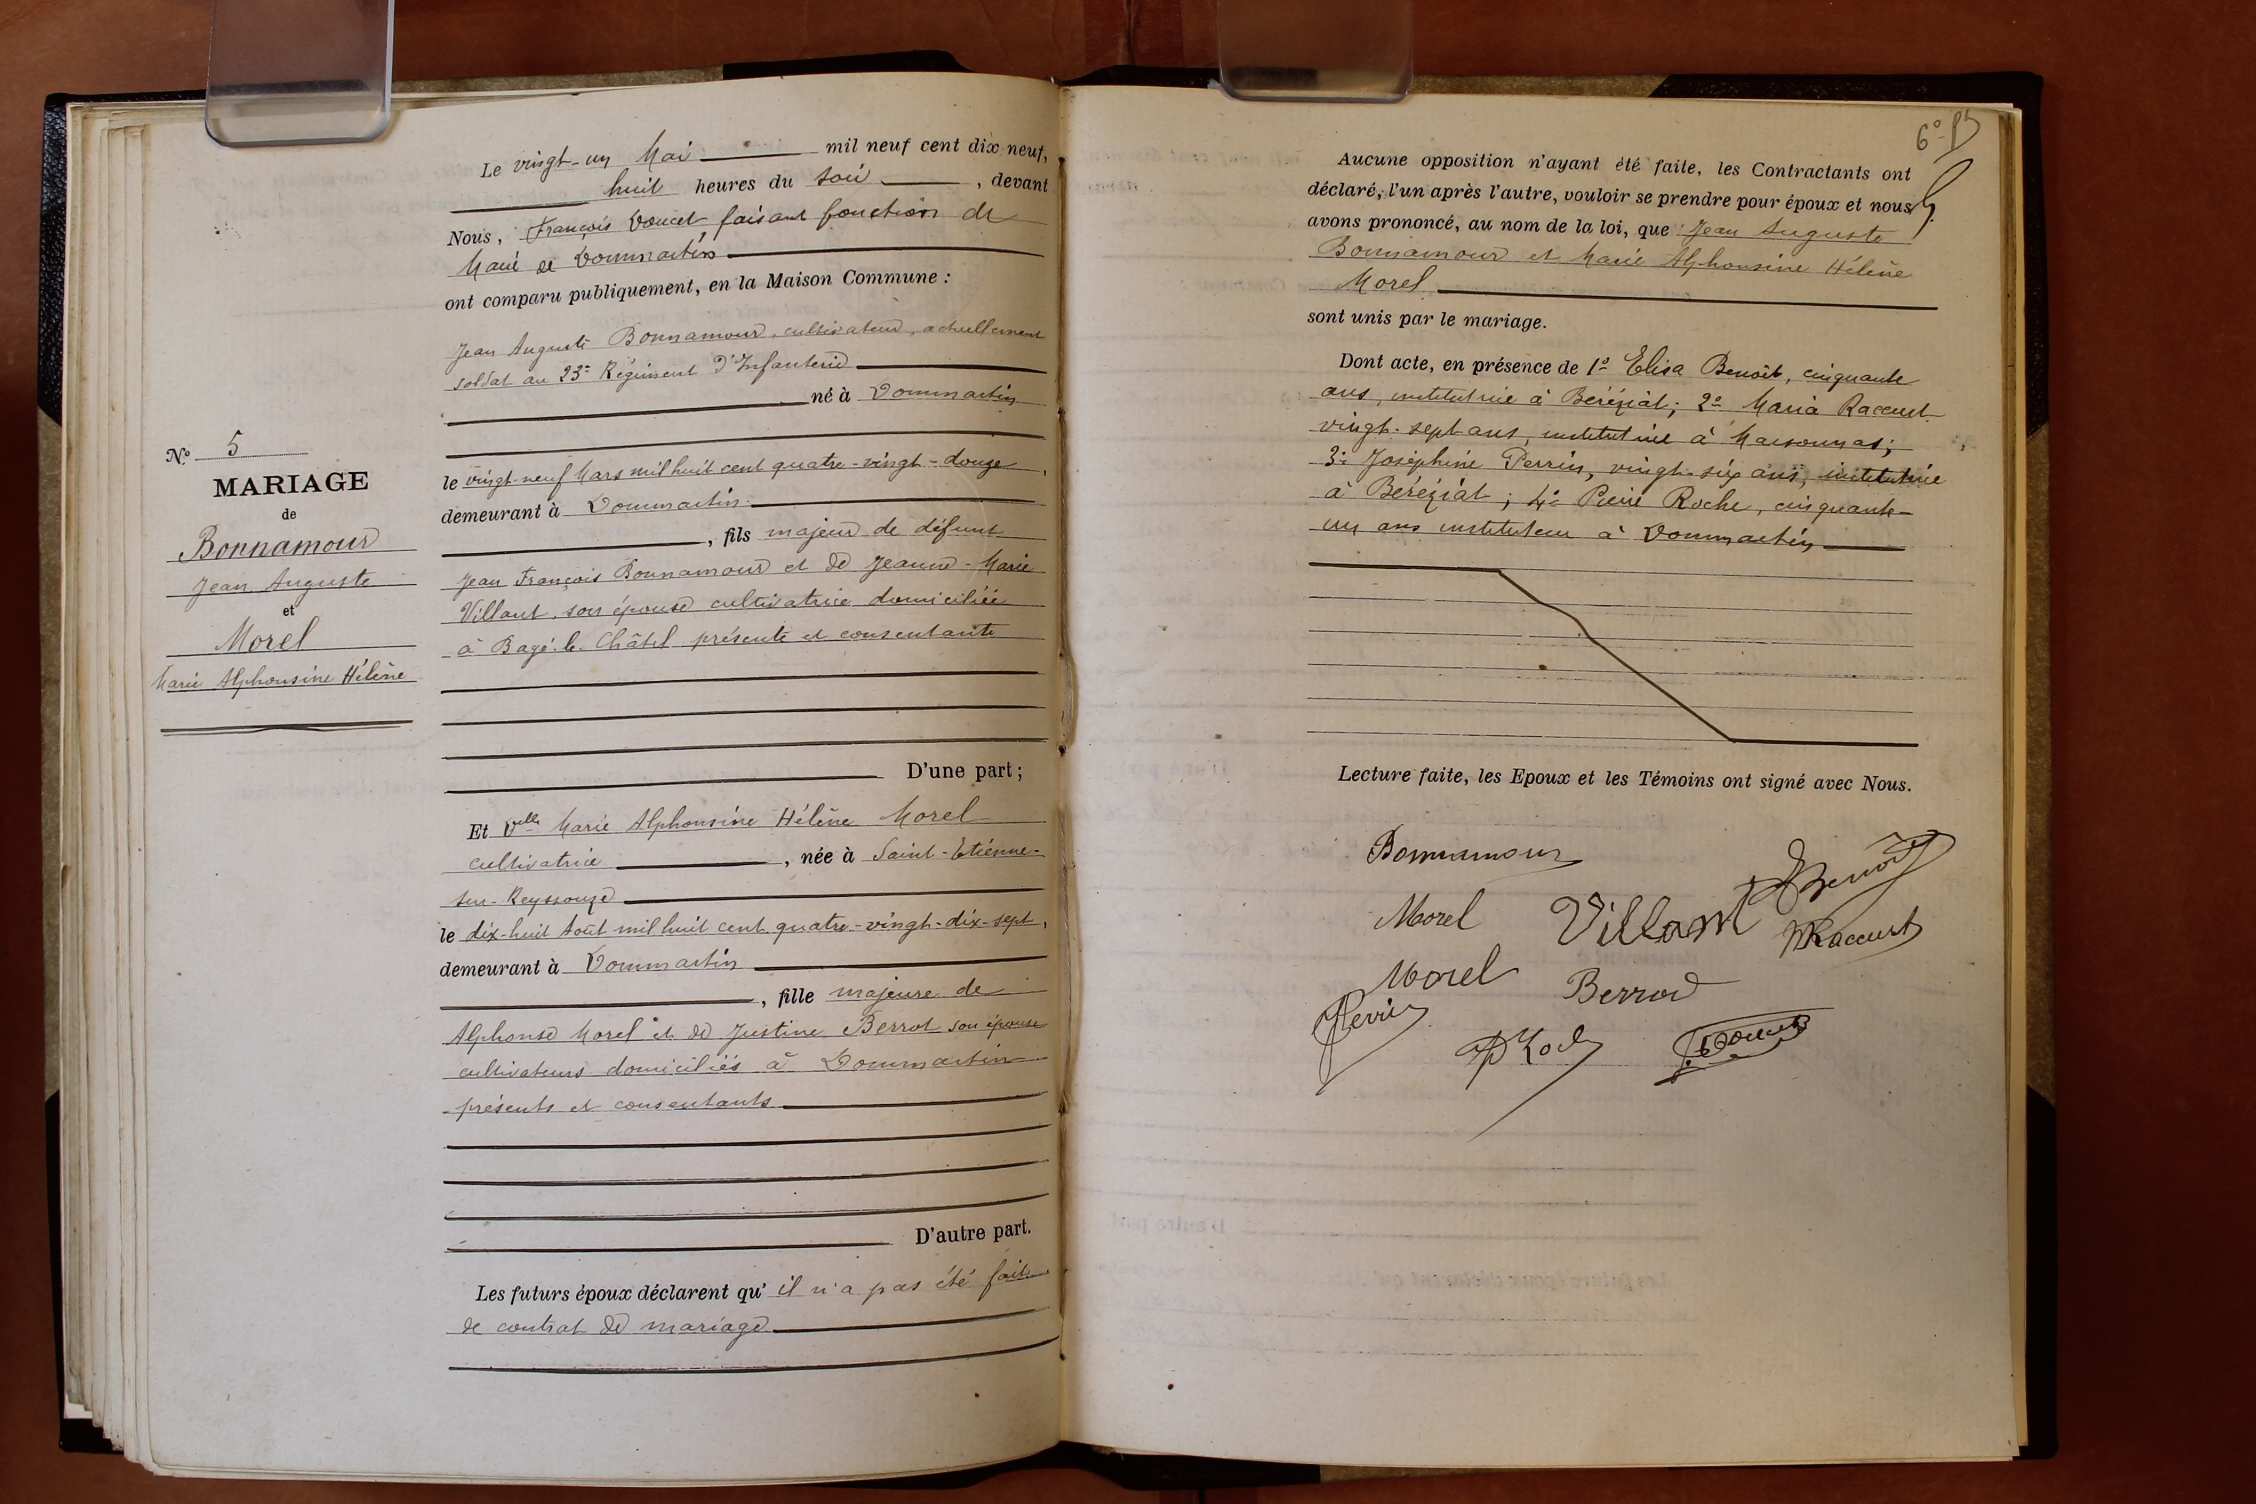 N.º 5
MARIAGE
de
Bonnamour
Jean Auguste
et
Morel
Marie Alphonsine Hélène
Le vingt-un Mai mil neuf cent dix neuf,
huit heures du soir, devant
Nous, François Doucet faisant fonction de
Maire de Dommartin
ont comparu publiquement, en la Maison Commune :
Jean Auguste Bonnamour, cultivateur, actuellement
soldat au 23e Régiment d'Infanterie
né à Dommartin
le vingt-neuf Mars mil huit cent quatre-vingt-douze,
demeurant à Dommartin
, fils majeur de défunt
Jean François Bonnamour et de Jeanne-Marie
Villant, son épouse cultivatrice domiciliée
à Bagé-le-Châtel présente et consentante
D'une part ;
Et Delle Marie Alphonsine Hélène Morel
cultivatrice, née à Saint-Etienne-
sur-Reyssouze
le dix-huit Août mil huit cent quatre-vingt-dix-sept,
demeurant à Dommartin
, fille majeure de
Alphonse Morel et de Justine Berrot son épouse
cultivateurs domiciliés à Dommartin
présents et consentants
D'autre part.
Les futurs époux déclarent qu' il n'a pas été fait
de contrat de mariage
6º
Aucune opposition n'ayant été faite, les Contractants ont
déclaré, l'un après l'autre, vouloir se prendre pour époux et nous
avons prononcé, au nom de la loi, que Jean Auguste
Bonnamour et Marie Alphonsine Hélène
Morel
sont unis par le mariage.
Dont acte, en présence de 1º Elisa Benoît, cinquante
ans, institutrice à Béréziat ; 2º Maria Raccurt
vingt-sept ans, institutrice à Marsonnas ;
3º Joséphine Perrin, vingt-six ans, institutrice
à Béréziat ; 4º Pierre Roche, cinquante-
un ans instituteur à Dommartin
Lecture faite, les Epoux et les Témoins ont signé avec Nous.
Bonnamour
Benoît
Morel
Villant
MRaccurt
Morel
Berrod
JPerrin
P Roche
F. Doucet